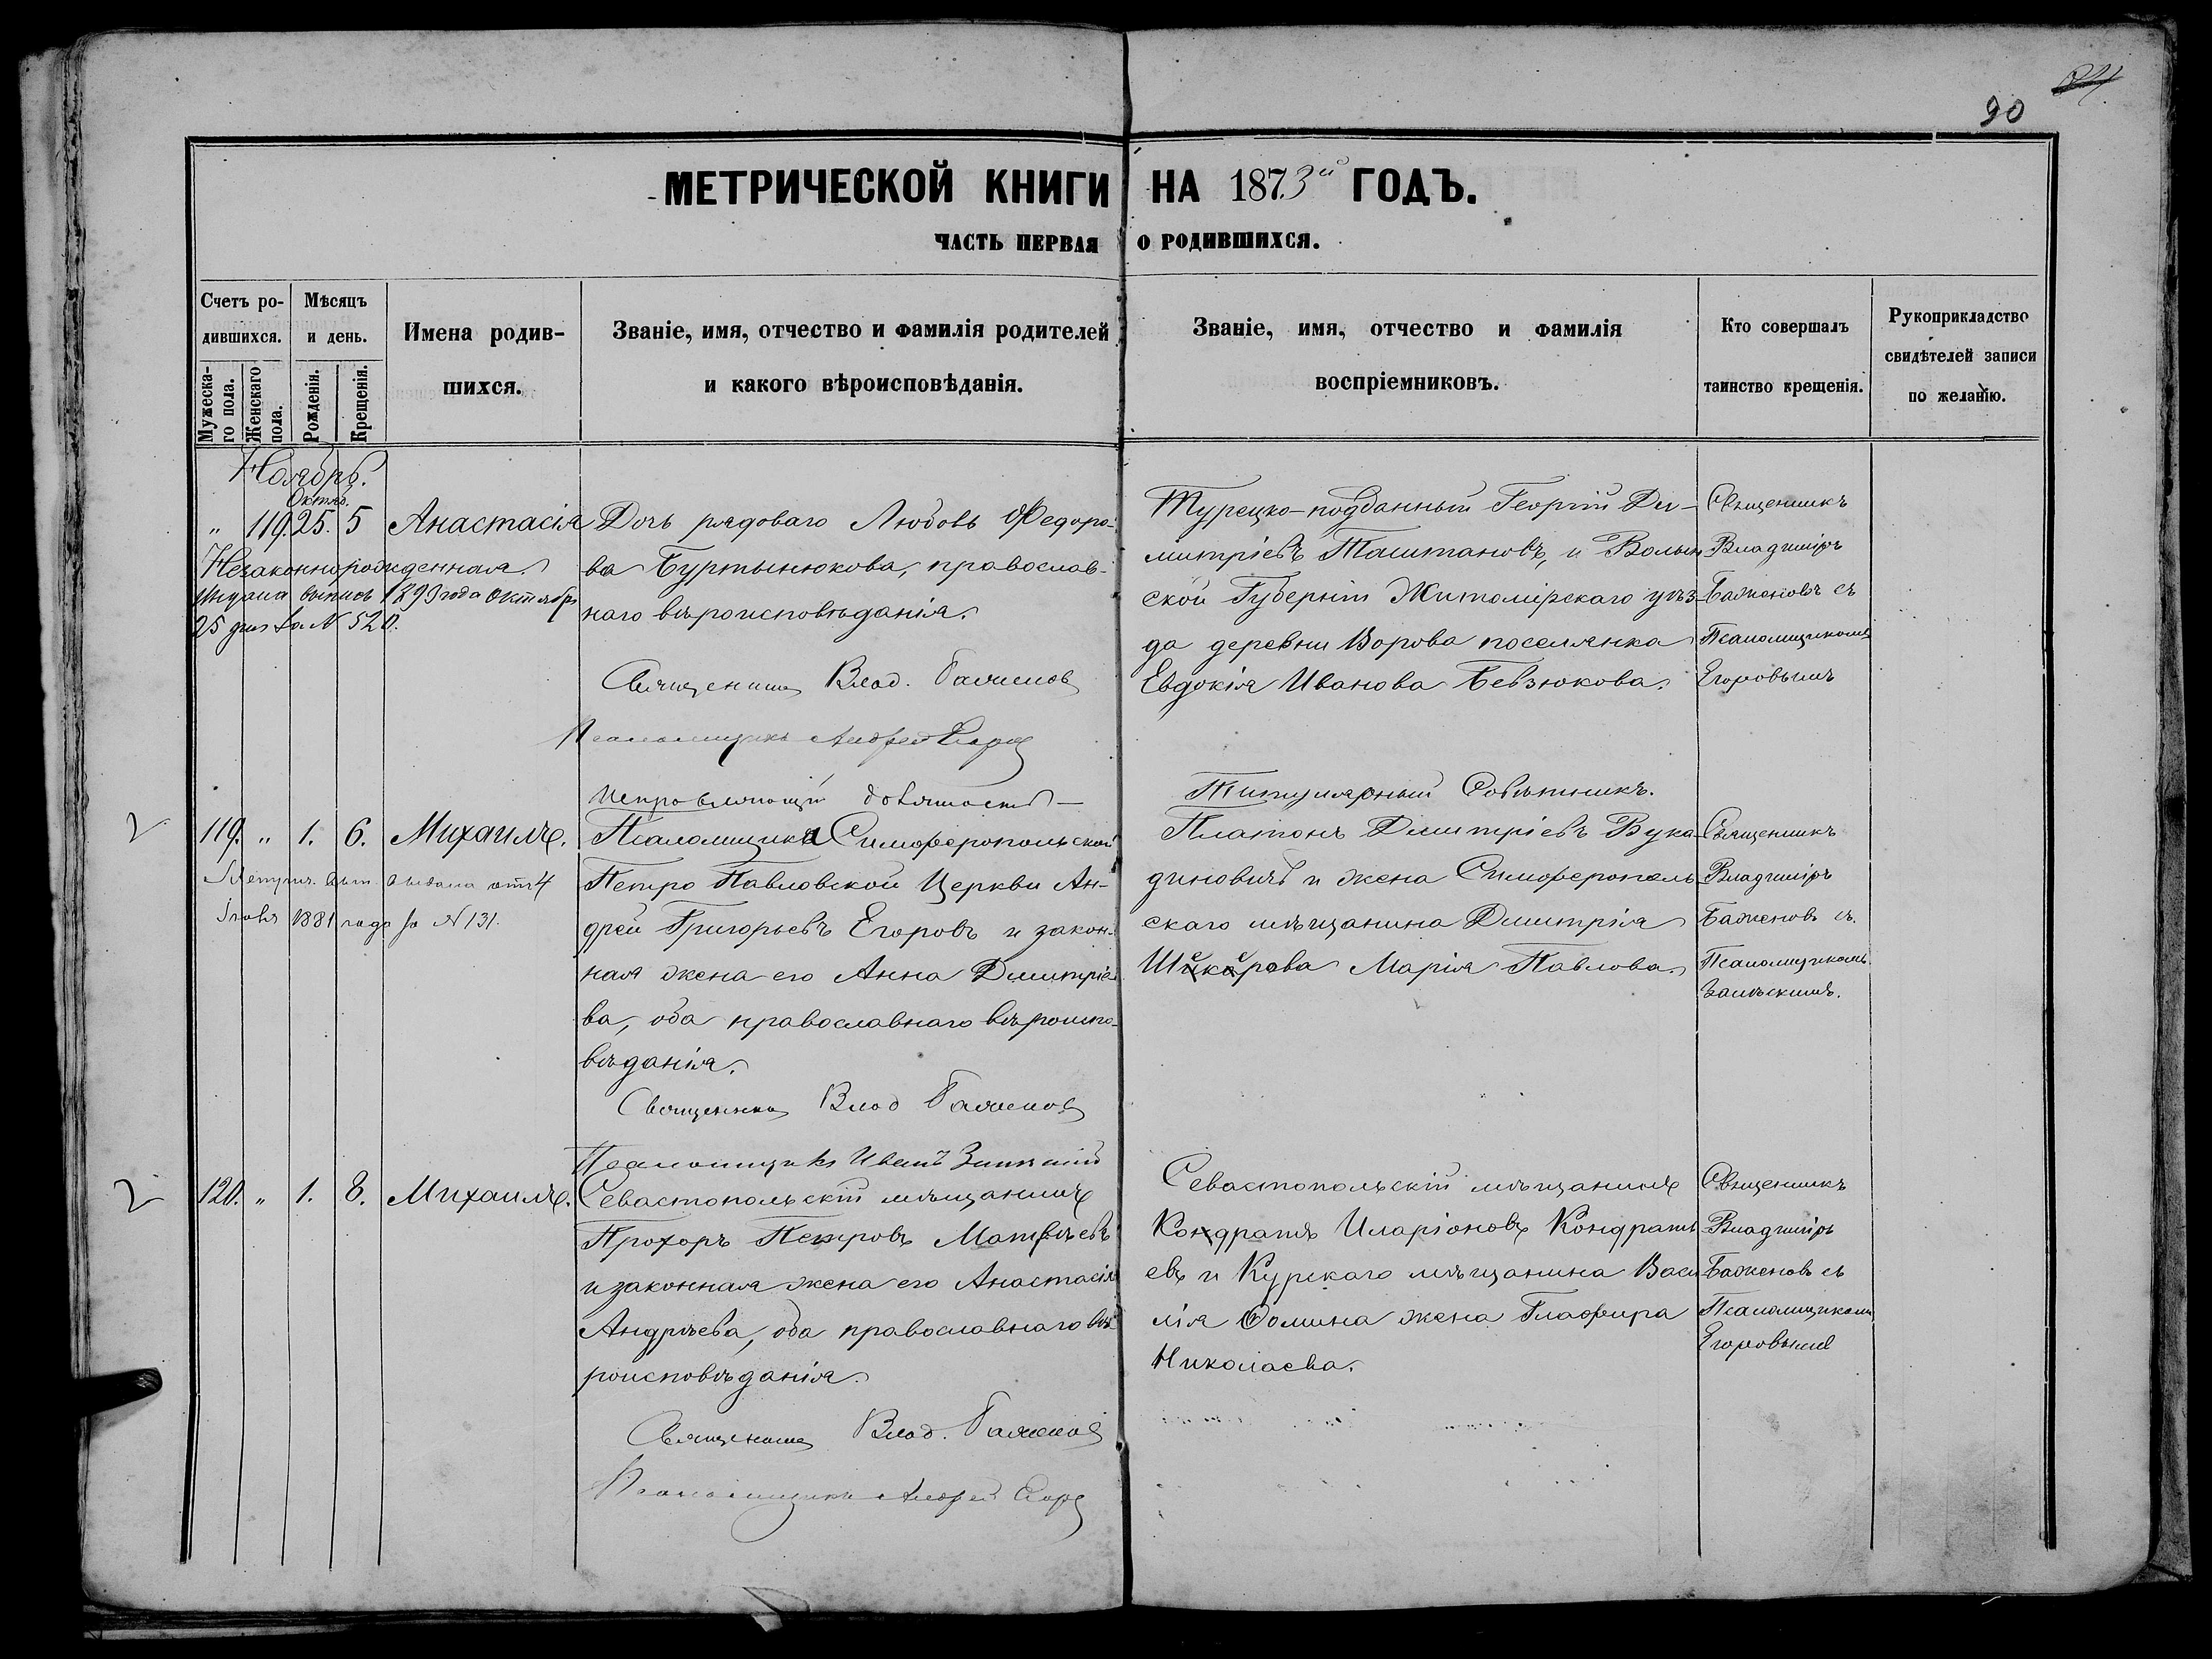 90
МЕТРИЧЕСКОЙ КНИГИ НА 1873й ГОДЪ.
ЧАСТЬ ПЕРВАЯ О РОДИВШИХСЯ.
Счетъ ро-
дившихся.
Мужеска-
го пола.
Женскаго
пола.
Мѣсяцъ
и день.
Рожденія.
Крещенія.
Имена родив-
шихся.
Званіе, имя, отчество и фамилія родителей
и какого вѣроисповѣданія.
Званіе, имя, отчество и фамилія
воспріемниковъ.
Кто совершалъ
таинство крещенія.
Рукоприкладство
свидѣтелей записи
по желанію.
Ноябрь.
Октяб.
„ 119. 25. 5 Анастасія
Незаконнорожденная.
выпись 1899 года Октября
25 дня за N 520.
Дочь рядоваго Любовь Ѳедоро-
ва Буртынюкова, православ-
наго вѣроисповѣданія.
Священникъ Влад. Баженовъ
Псаломщикъ Андрей Егоровъ
Турецко-подданный Георгій Ди-
митріевъ Таштановъ, и Волын
ской Губерніи Житомірскаго уѣз-
да деревни Ворова поселянка
Евдокія Иванова Бевзюкова.
Священникъ
Владиміръ
Баженовъ съ
Псаломщикомъ
Егоровымъ
2
119. „ 1. 6. Михаилъ.
Метрич. выдана отъ 4
1881 года за N 131.
Исправляющій должность
Псаломщика Симферопольской
Петро Павловской Церкви Ан-
дрей Григорьевъ Егоровъ и закон-
ная жена его Анна Дмитріе
ва, оба православнаго вѣроиспо-
вѣданія.
Священникъ Влад Баженовъ
Псаломщикъ Иванъ
Титулярный Совѣтникъ.
Платонъ Дмитріевъ Вука-
диновичъ и жена Симферополь
скаго мѣщанина Дмитрія
Марія Павлова.
Священникъ
Владиміръ
Баженовъ съ.
Псаломщикомъ
2
120. „ 1. 8. Михаилъ.
Севастопольскій мѣщанинъ
Прохоръ Петровъ Матвѣевъ
и законная жена его Анастасія
Андрѣева, оба православнаго вѣ-
роисповѣданія.
Священникъ Влад. Баженовъ
Псаломщикъ Андрей Егоровъ
Севастопольскій мѣщанинъ
Кондратъ Иларіоновъ Кондрать
евъ и Курскаго мѣщанина Васи
лія Ѳомина жена Глафира
Николаева.
Священникъ
Владиміръ
Баженовъ съ
Псаломщикомъ
Егоровымъ